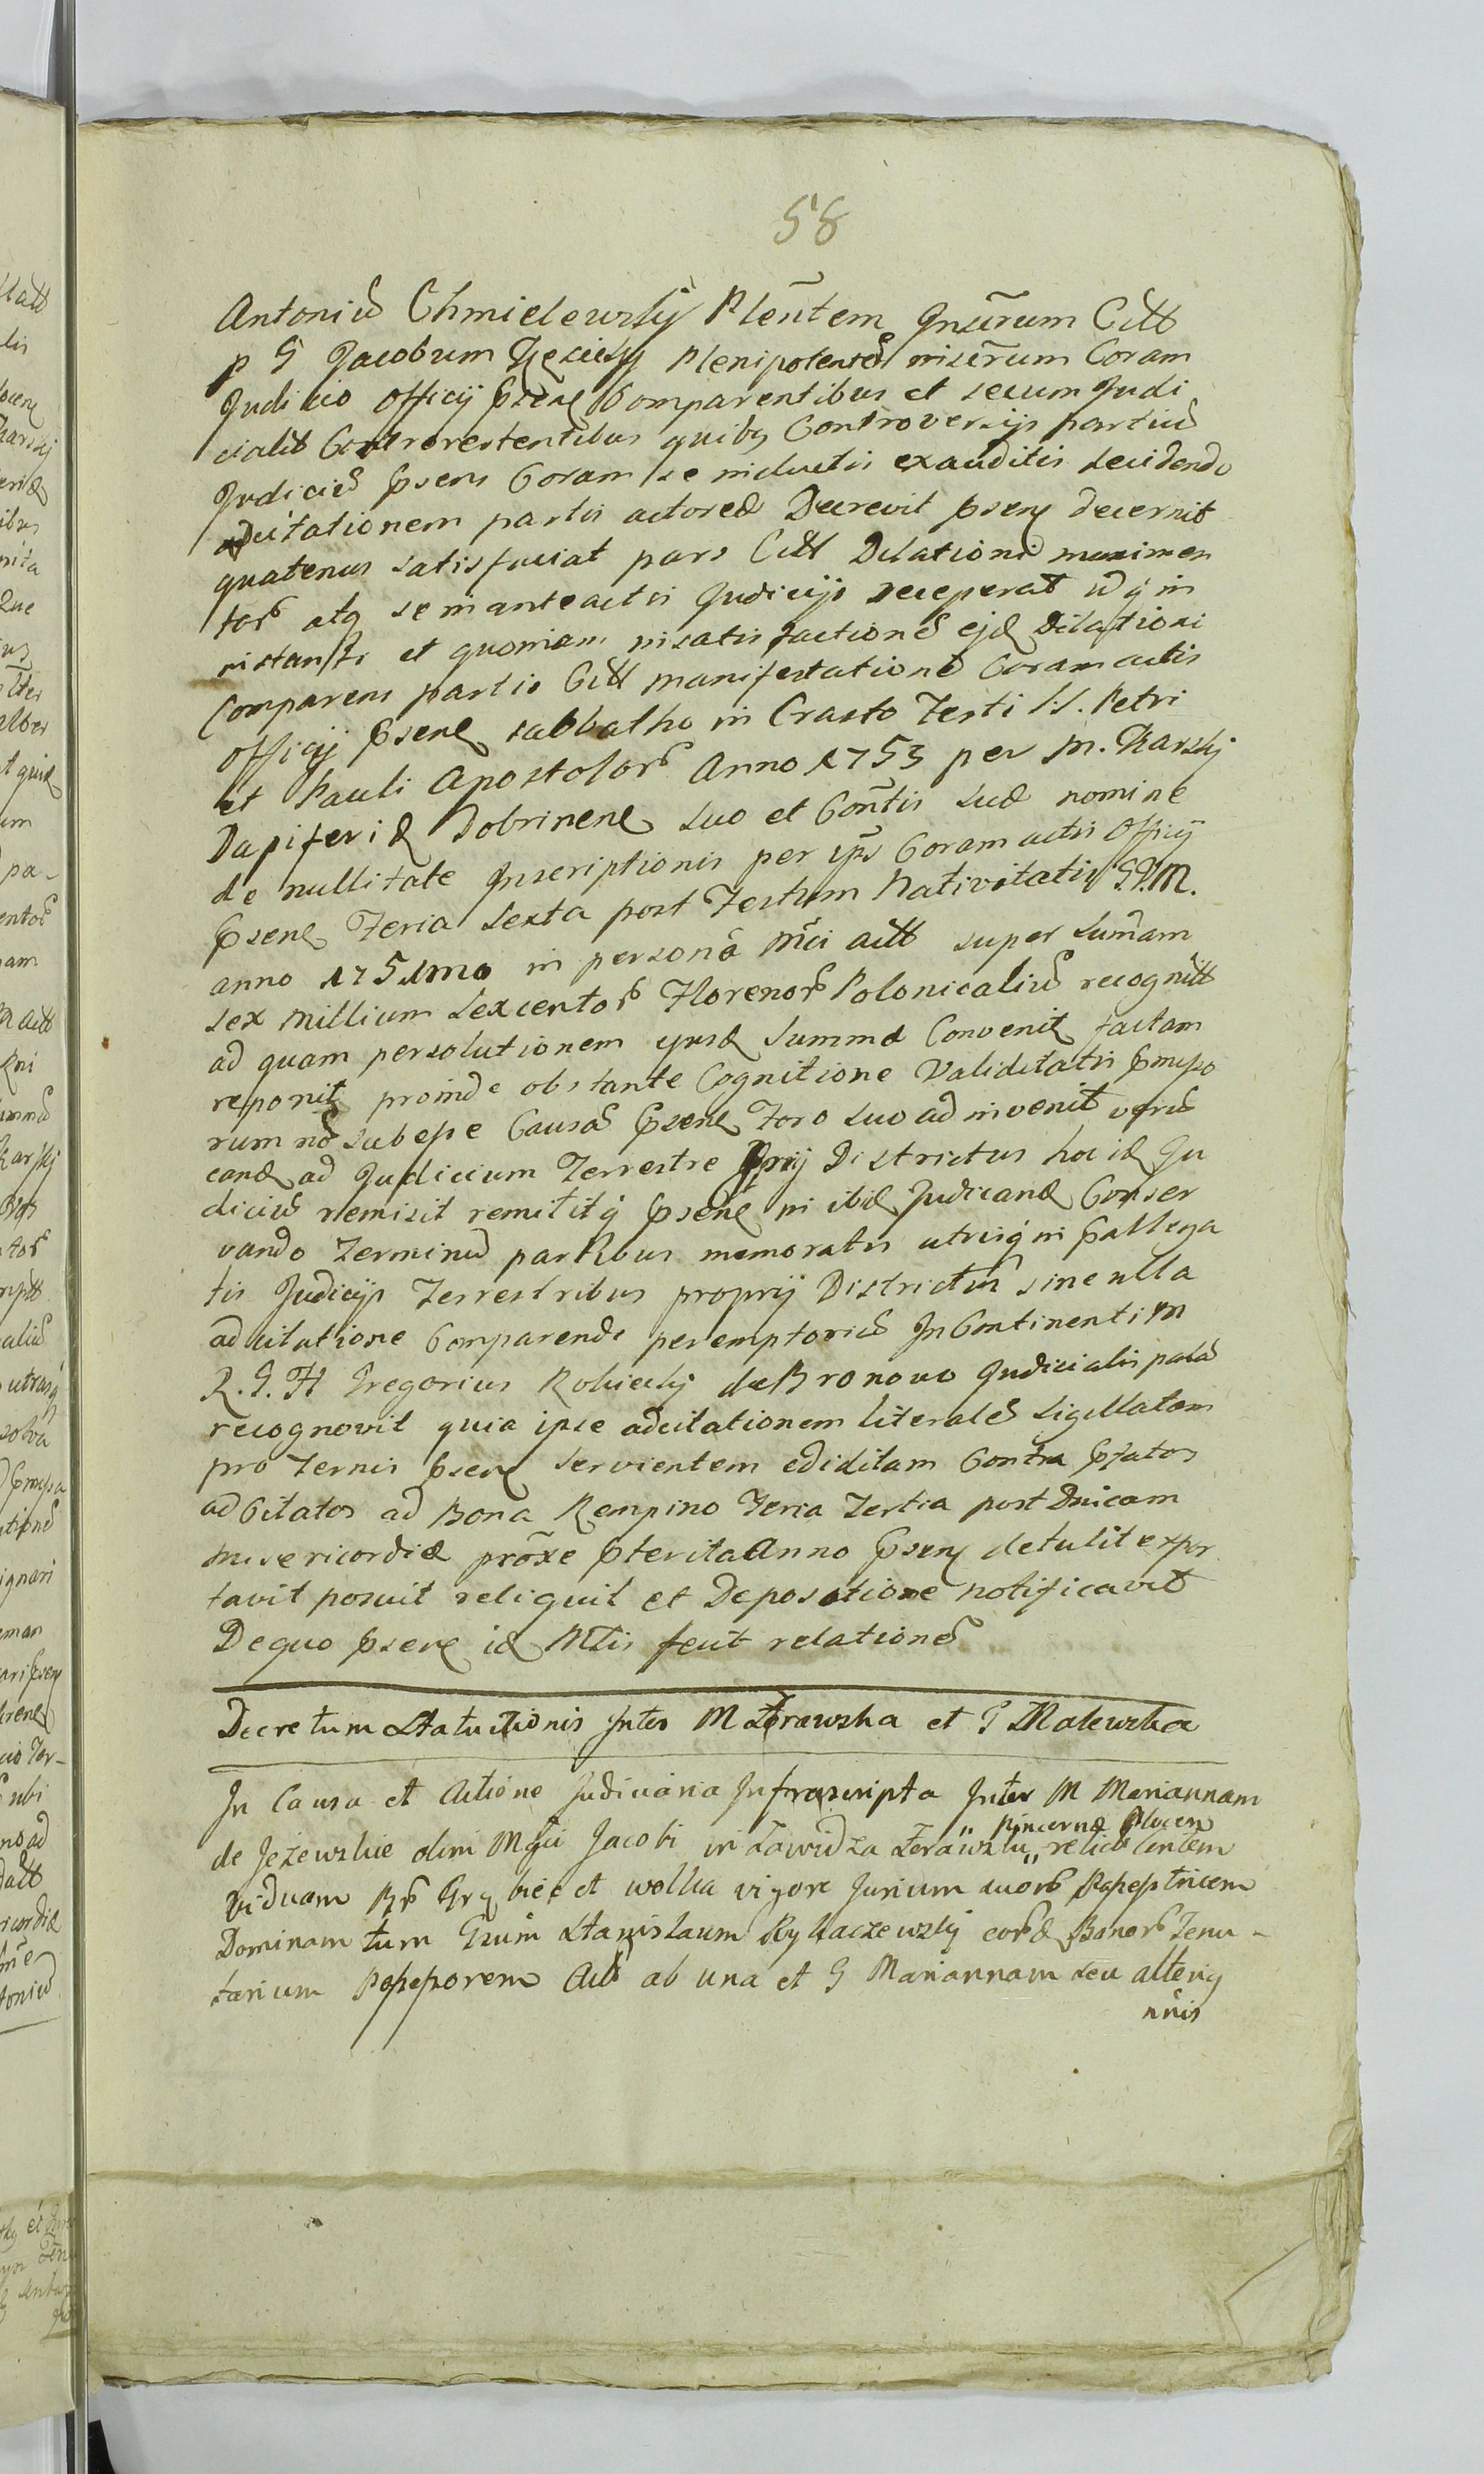 58
Antoniũ Chmielewsky Plentem Insērum Citt
p G Jacobum Plenipotentē Coram
Judicio Officij Psēne Comparentibus et secum Judi
cialit Controvertentibus quibq Controversijs partiũ
Judiciũ Psens Coram se inductis exauditis decidendo
adcitationem partis actoreæ Decrevit Psens decernit
quatenus satisfaciat pars Citt Dilationi munimen
tor atq se in anteactis Judicijs receperat idq in
instanti et quoniam in satisfactionē ejđ Dilationi
Comparens partis Citt manifestationē Coram actis
Officij Psene sabbatho in Crasto Festi S.S. Petri
et Pauli Apostolor Anno 1753 per M. Karsky
Dapiferiđ Dobrinene suo et Contis suæ nomine
de nullitate Inscriptionis per ips Coram actis Officij
Psene Feria Sexta post Festum Nativitatis
anno 1751mo in personā Mci actt super sumam
sex Millium Sexcentor Florenor Polonicaliũ recognitt
ad quam persolutionem ipsæ Summæ Convenit factam
reponit proinde obstante Cognitione Validitatis Pmiso
rum nō subesse Causā Psene Foro suo ad invenit
canđ ad Judicium Terrestre Prij Districtus hoc iđ Ju
diciũ remisit remititq Psene in ibiđ Judicanđ Conser
vando Terminũ partibus memoratis utrisq in Pallega
tis Judicijs Terrestribus proprij Districtus sine ulla
adcitatione Comparendi peremptoriũ In Continenti M
R. G. H Gregorius Robiecky de Bronowo Judicialis palā
recognovit quia ipse adcitationem literalē Sigillatam
pro Ternis Psene servientem ediditam Contra Pfatos
ad Citatos ad Bona Rempino Feria Tertia post Dnicam
Misericordiæ prōxe Pterita Anno Psens detulit expor
tavit posuit reliquit et Depositione notificavit
De quo Psene iđ Mtis fecit relationē
Decretum Statuitionis Inter M Żerawska et G Malewska
In Causa et Actione Judiciaria Infrascripta Inter M Mariannam
pincernæ Plocen
de Jeżewskie olim Mgci Jacobi in Zawidza Żerawsky relict Contem
Viduam Br Grzybiec et Wolka vigore Jurium suor Possestricem
Dominam tum Gsum Stanislaum Rykaczewsky eorđ Bonor Tenu-
tarium Possessorem Act ab una et G Mariannam seu alterig
nnis